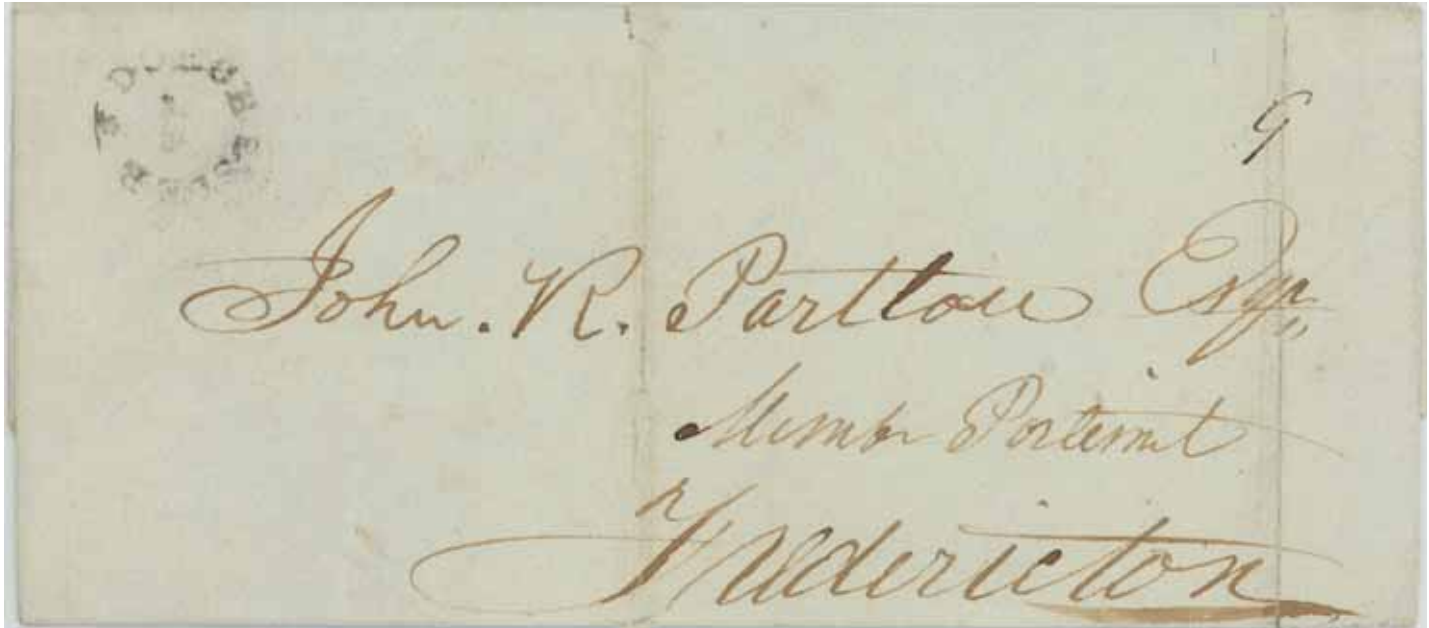 9
John. R. Partlow Esqr.
Member
Fredericton